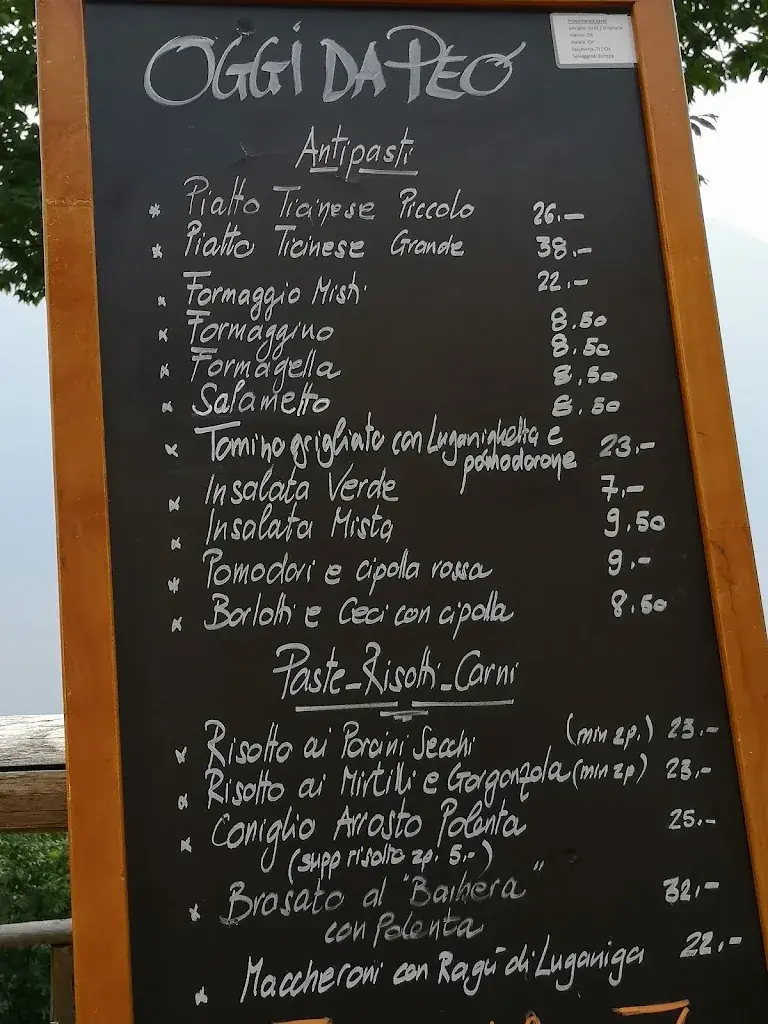 OGGI DA PEO
Provenienza carni
Antipasti
* Piatto Ticinese Piccolo 26.-
* Piatto Ticinese Grande 38.-
* Formaggio Misti 22.-
* Formaggino 8.50
8.50
* Formagella 8.50
* Salametto 8.50
* Tomino grigliato con Luganighetta e 23.-
pomodorone
* Insalata Verde 7.-
* Insalata Mista 9.50
* Pomodori e cipolla rossa 9.-
* Borlotti e Ceci con cipolla 8.50
Paste-Risotti-Carni
* Risotto ai Porcini Secchi (min 2p.) 23.-
* Risotto ai Mirtilli e Gorgonzola (min 2p) 23.-
* Coniglio Arrosto Polenta 25.-
(supp risotto 2p. 5.-)
* Brasato al "Barbera" 32.-
con Polenta
* Maccheroni con Ragù di Luganiga 22.-